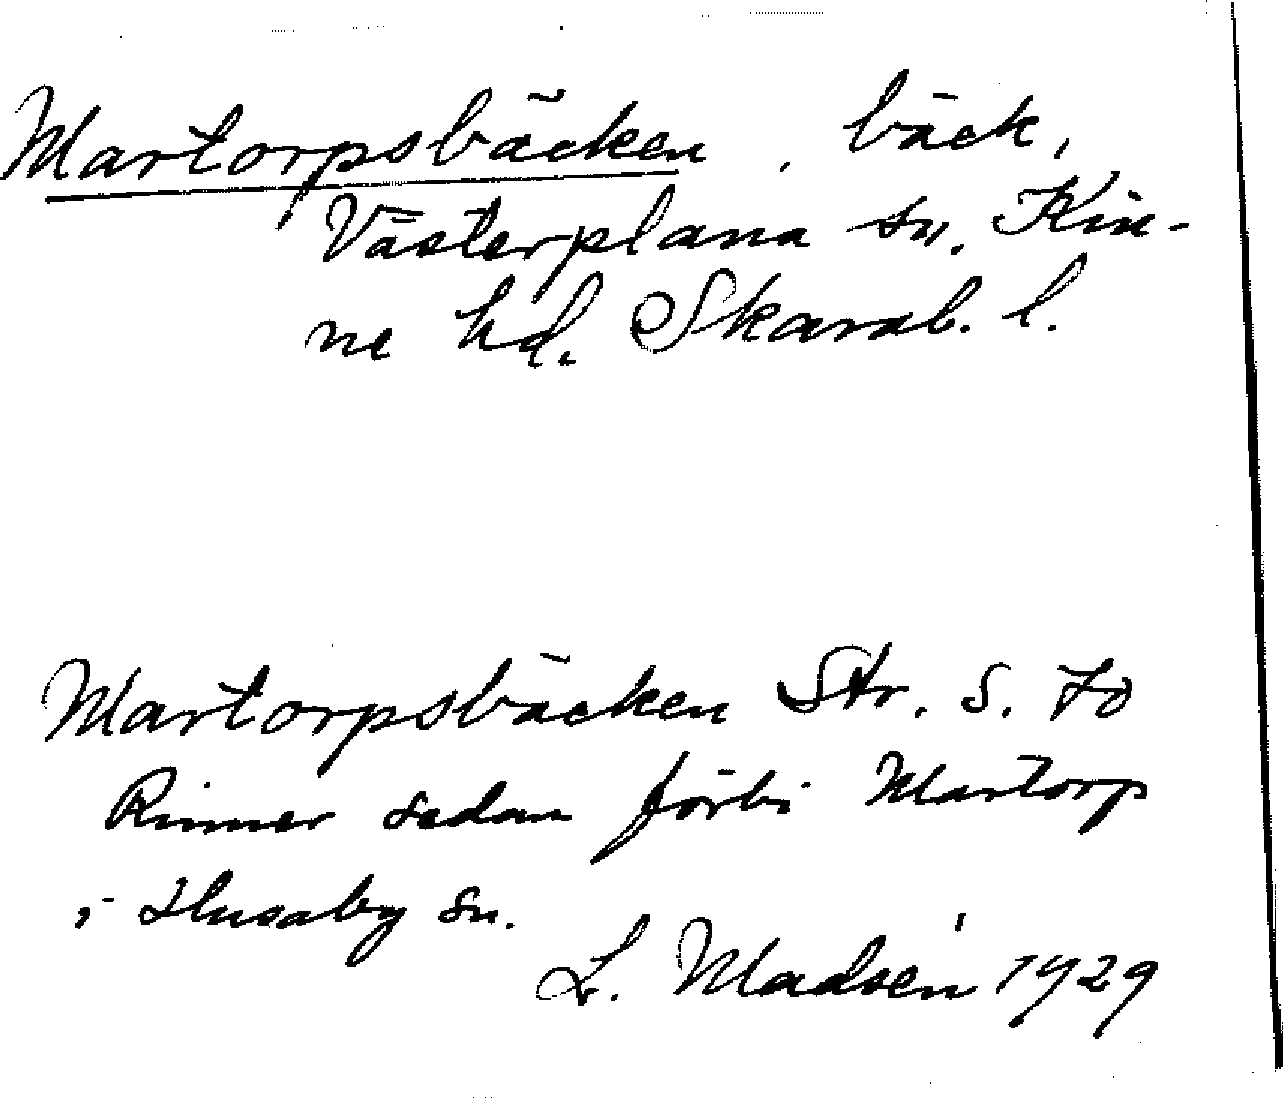 Martorpsbäcken, bäck,
Västerplana sn. Kin-
ne hd. Skarab. l.
Martorpsbäcken Str. S. 70
Rinner sedan förbi Martorp
i Husaby sn.
L. Madsén 1929